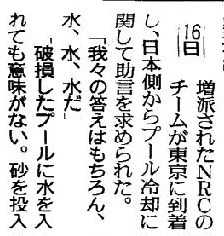 16日
増派されたNRCの
チームが東京に到着
し、日本側からプール冷却に
関して助言を求められた。
「我々の答えはもちろん、
水、水、水だ」
「破損したプールに水を入
れても意味がない。砂を投入